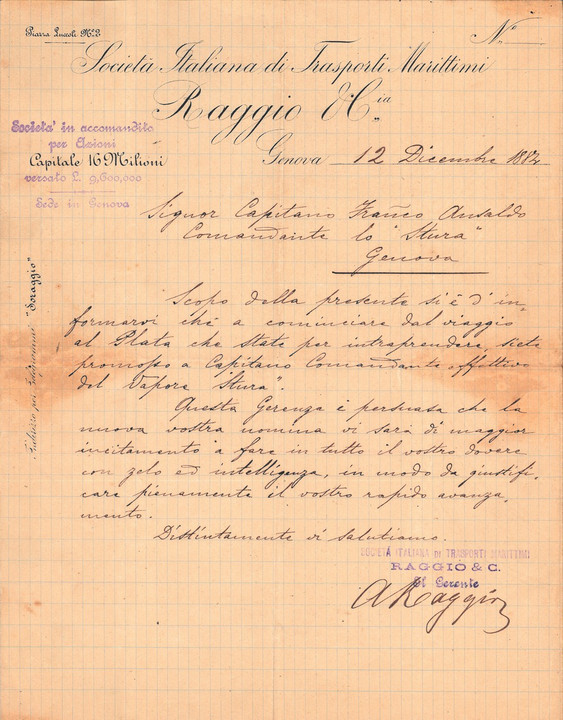 Piazza Luccoli Nº 2
Nº
Società Italiana di Trasporti Marittimi
Raggio & Cia
Società in accomandita
per Azioni
Capitale 16 Milioni
versato L. 9,600,000
Sede in Genova
Genova 12 Dicembre 1882
Signor Capitano Franco Ansaldo
Comandante lo "Stura"
Genova
Indirizzo pei Telegrammi "Soraggio"
Scopo della presente si è d'in-
formarvi che a cominciare dal viaggio
al Plata che state per intraprendere, siete
promosso a Capitano Comandante effettivo
del Vapore Stura".
Questa Gerenza è persuasa che la
nuova vostra nomina vi sarà di maggior
incitamento a fare in tutto il vostro dovere
con zelo ed intelligenza, in modo da giustifi-
care pienamente il vostro rapido avanza-
mento.
Distintamente vi salutiamo.
SOCIETÀ ITALIANA DI TRASPORTI MARITTIMI
RAGGIO & C.
Il Gerente
ARaggio